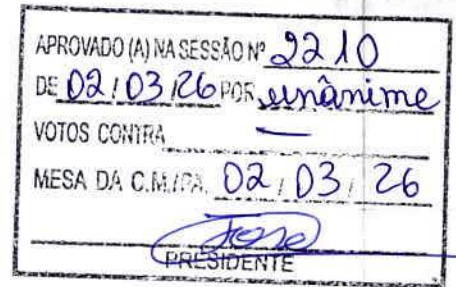 APROVADO (A) NA SESSÃO Nº 2210
DE 02/03/26 POR unânime
VOTOS CONTRA —
MESA DA C.M./PA, 02/03/26
PRESIDENTE